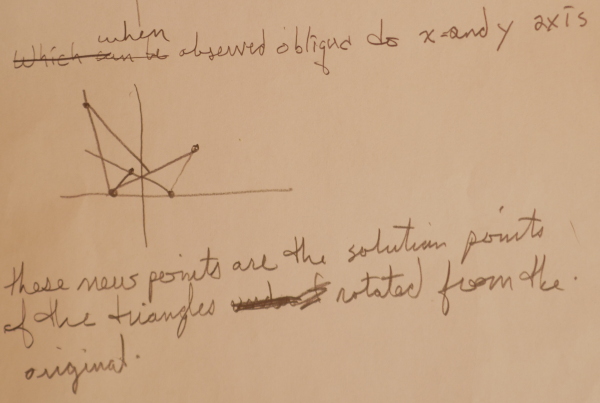 when
Which can be observed oblique to x-and y axis
these new points are the solution points
of the triangles rotated from the
original.